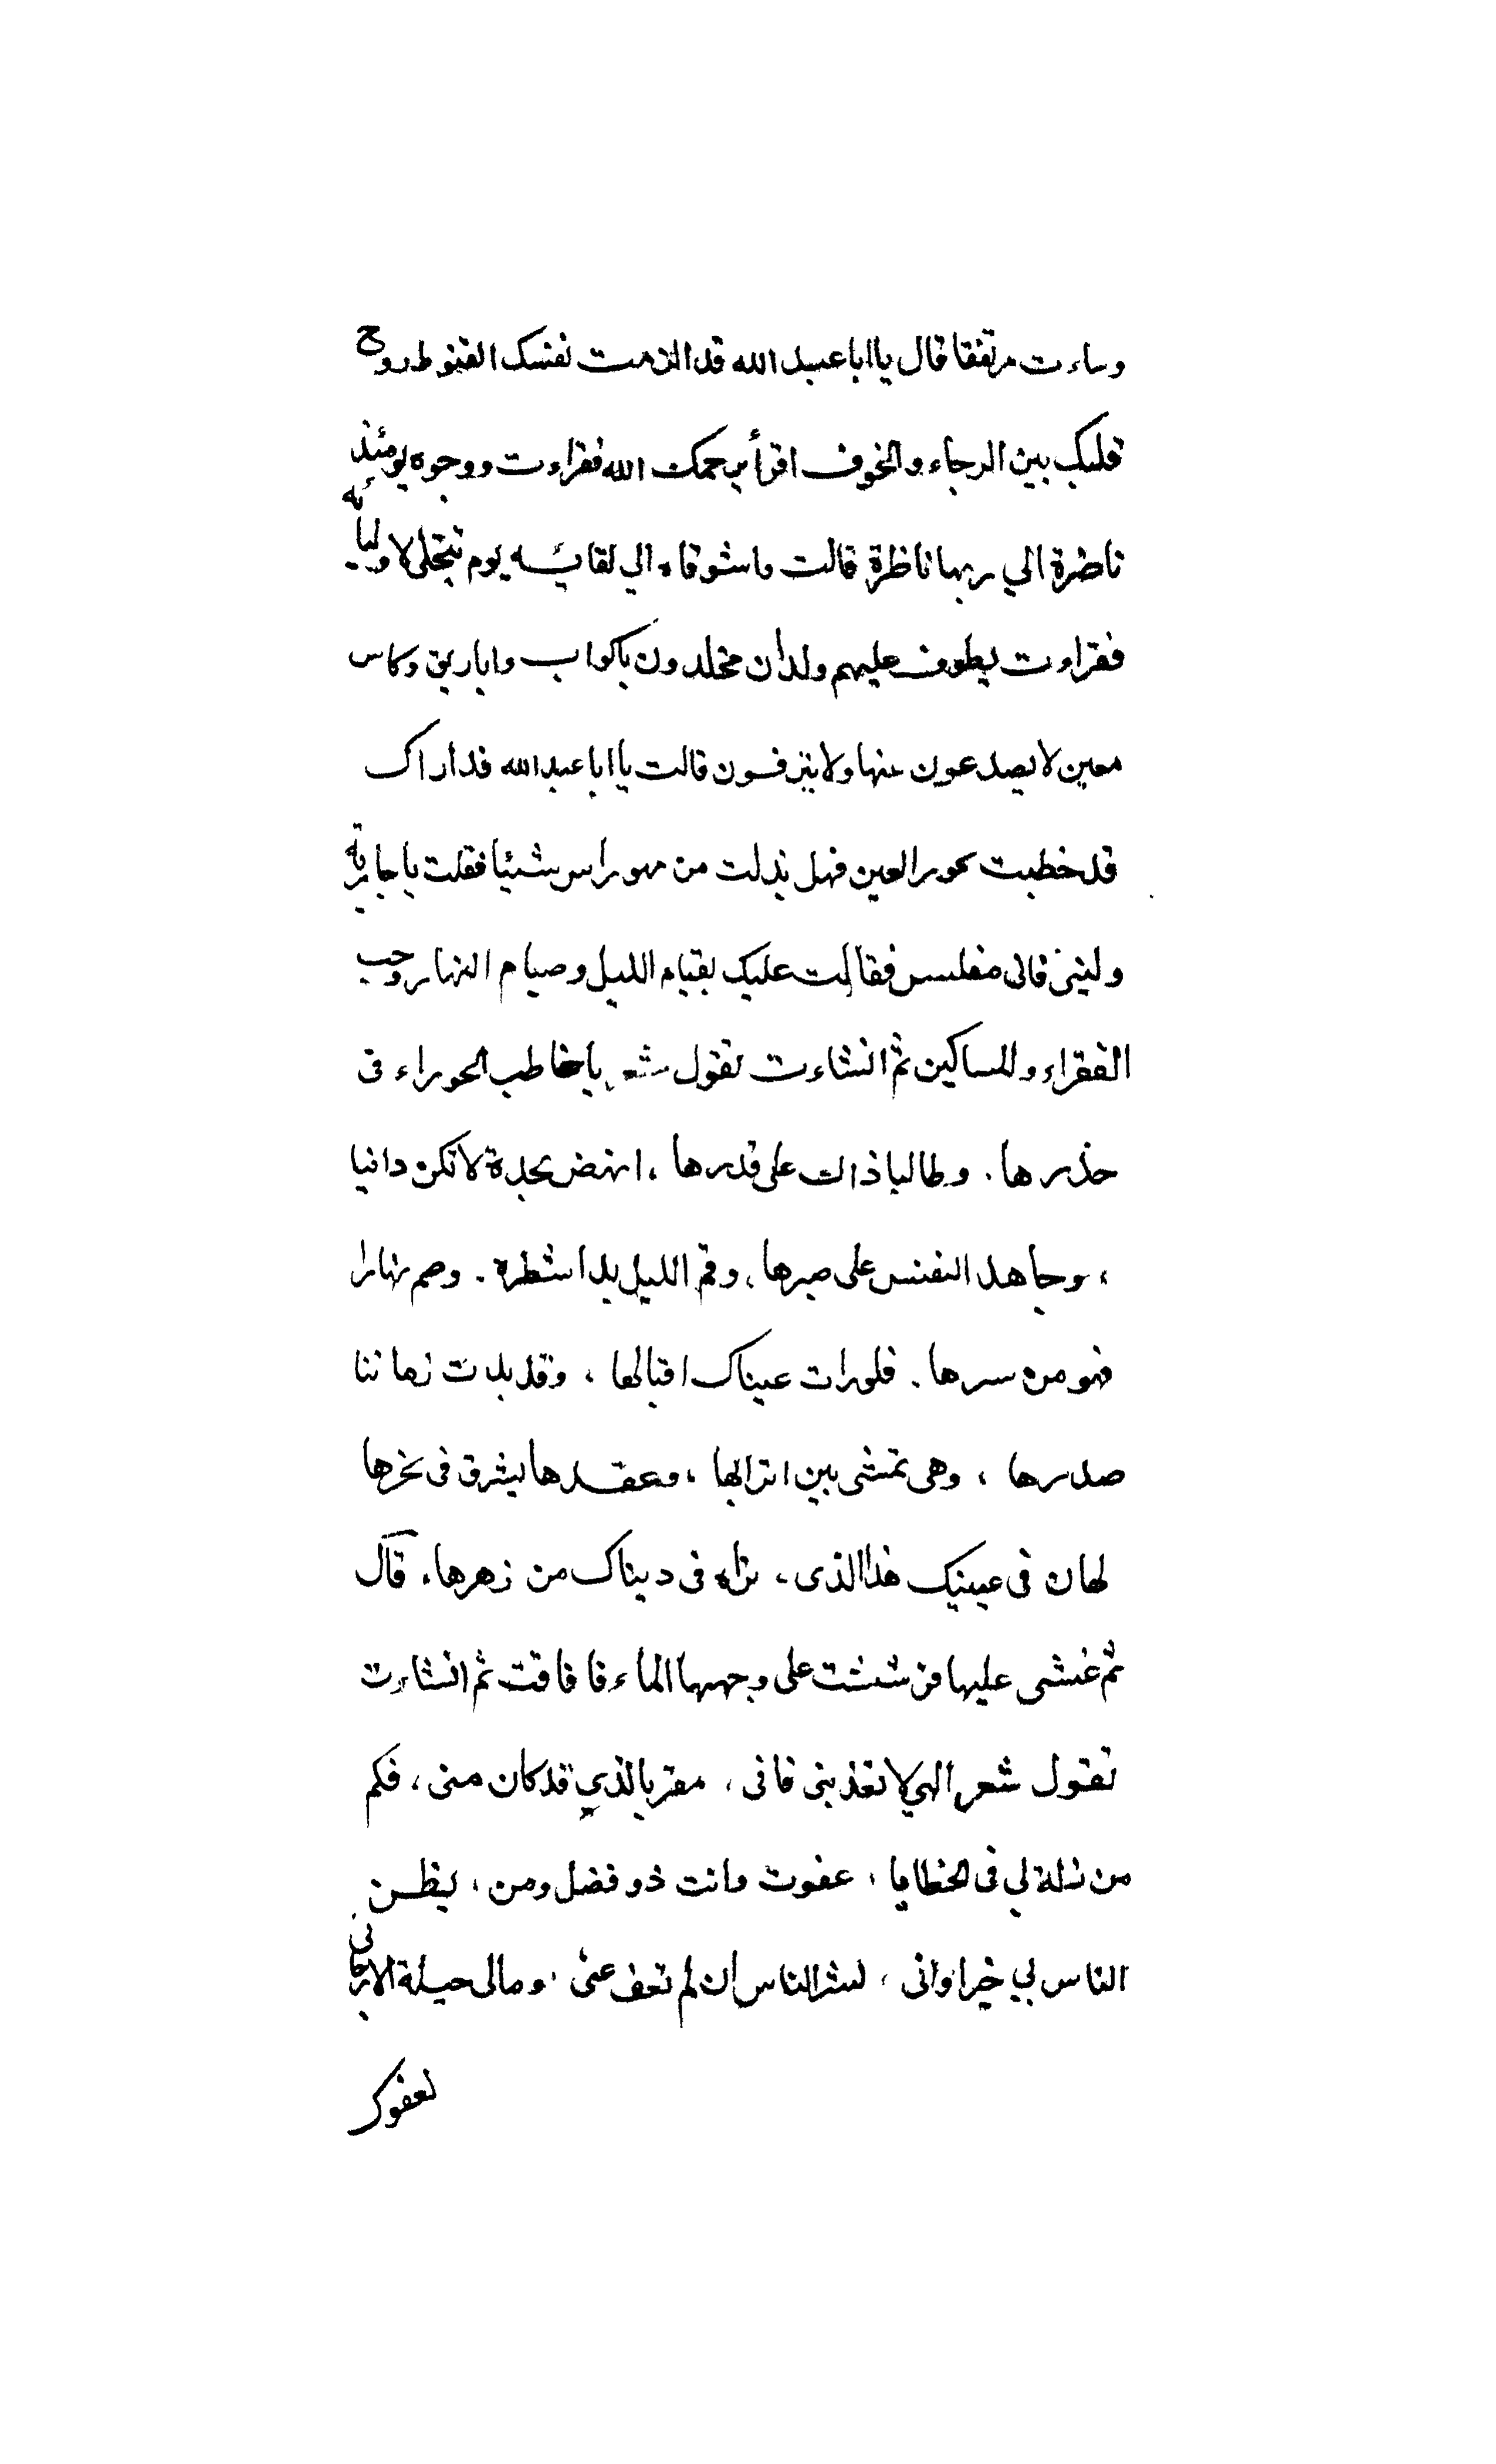 وساءت مرتفقا قال يا ابا عبد الله قد الزمت نفسك القنوط روح
قلبك بين الرجاء والخوف اقرأ يرحمك الله فقراءت ووجوه يومئذ
ناضرة الي ربها ناظرة قالت واشوقاه الي لقائه يوم يتجلى لاوليائه
فقراوت يطوف عليهم ولدان مخلدون باكواب واباريق وكاس
معين لا يصدعون عنها ولا ينزفون قالت يا ابا عبد الله قد اراك
قد خطبت حور العين فهل بذلت من مهورا شيئا فقلت يا جارية
وليني فانى مفلس فقالت عليك بقيام الليل وصيام النهار وحب
الفقراء والمساكين ثم انشاءت تقول شعر يا خاطب الحوراء فى
خدرها . وطالبا ذاك على قدرها ، انهض بجدة لا تكن دانيا
، وجاهد النفس على صبرها ، وقم الليل بدا شطره . وصم نهارا
فهو من سرها . فلو رات عيناك اقبالها ، وقد بدت رمانتا
صدرها ، وهى تمشى بين اترابها ، وعقدها يشرق فى نحرها
لهان فى عينيك هذا الذى ، تراه فى ديناك من زهرها . قال
ثم غشى عليها فرششت على وجهها الماء فا فاقت ثم انشاءت
تقول شعر الهي لا تعذبنى فانى ، مقر بالذي قد كان منى ، فكم
من زلة لي فى الخطايا ، عفوت وانت ذو فضل ومن ، يظن
الناس لي خيرا وانى ، لشر الناس ان لم تعف عنى ، ومالى حيلة الا رجائى
لعفوك